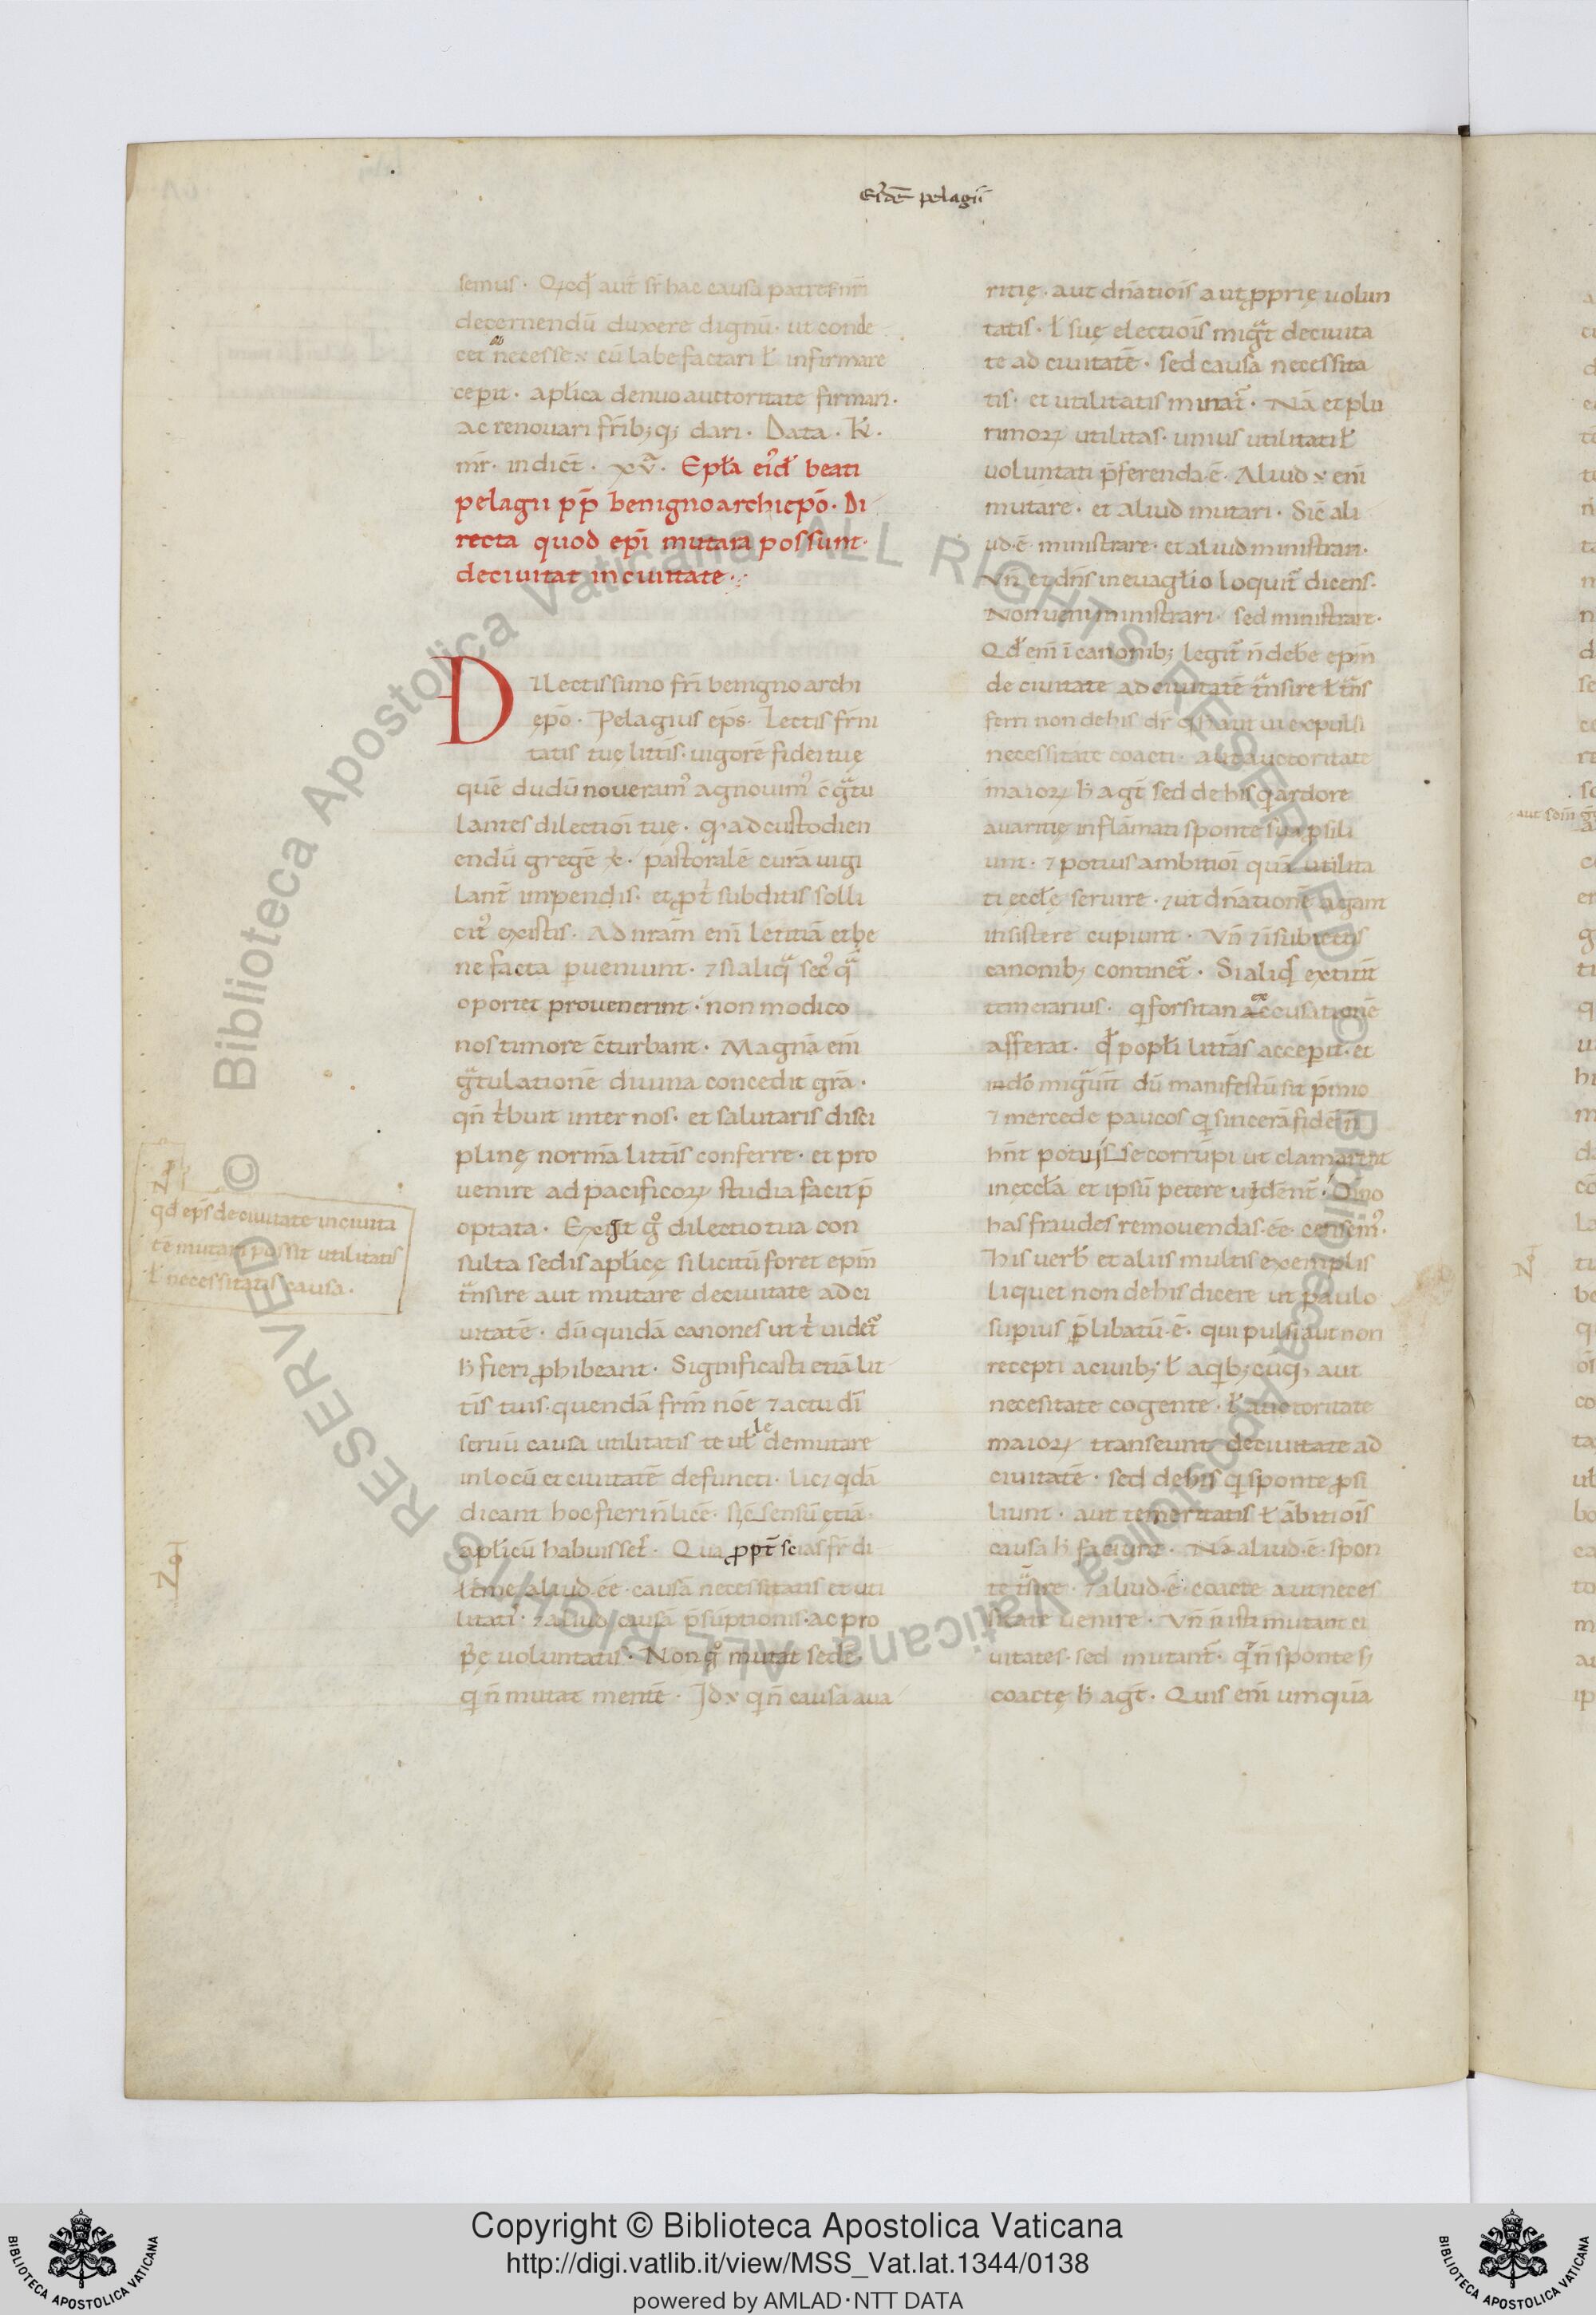 Eiđe pelagii
semus. Qicqđ aut̄ sr̄ hac causa patres nr̄i
decernendū duxere dignū. ut conde
cet ab necesse x cū labefactari ł infirmare
cepit. aplīca denuo auctoritate firmari.
ac renouari fr̄ib;q; dari. Data. kł.
mr̄. indict̄. xv. Epła ei᷒đ beati
pelagii pp̄ benigno archiepō. Di
recta quod ep̄i mutara possunt.
de ciuitat in ciuitate.
DIlectissimo fr̄i benigno archi
epō. Pelagius ep̄s. Lectis fr̄ni
tatis tuę litt̄is. uigorē fidei tuę
quē dudū noueram᷒ agnouim᷒ c̄g̃tu
lantes dilectioī tuę. qꝫ ad custodien
endū gregē x̄. pastoralē curā uigi
lant̄ impendis. et ꝓt̄ subditis solli
cit᷒ existis. Ad nr̄am eni letitiā et be
ne facta ꝑueniunt. ⁊ si aliq̃ sec᷒ q̃
oportet prouenerint. non modico
nos timore c̄turbant. Magnā eni
g̃tulationē diuina concedit gr̄a.
qn̄ t̍buit inter nos. et salutaris disci
plinę normā litt̄is conferre. et pro
uenire ad pacificoꝝ studia facit p̄
optata. Exegit g̊ dilectio tua con
sulta sedis aplīcę si licitū foret epm̄
t̃nsire aut mutare de ciuitate ad ci
uitatē. dū quidā canones ut t̍ uidet᷒
h̄ fieri ꝓhibeant. Significasti etiā lit
t̄is tuis. quendā fr̄m̄ nōe ⁊ actu dī
seruū causa utilitatis te uł le demutare
in locū et ciuitatē defuncti. lic⁊ qđā
dicant hoc fieri n̄ licē.
aplīcū habuisset. Qua ꝓpt̄ scias fr̄ di
ł̄me aliud .ēe. causā necessitatis et uti
litati. ⁊ aliud causā p̄sūptionis. ac pro
p̍ę uoluntatis. Non g̊ mutat sedē.
qi n̄ mutat mentē. Id x qi n̄ causa aua
ritię. aut dn̄atioīs aut ꝓprię uolun
tatis. ł suę electioīs mig̃t de ciuita
te ad ciuitatē. sed causa necessita
tis. et utilitatis mutat̄. Nā et plu
rimoꝝ utilitas. unius utilitati ł
uoluntati p̄ferenda .ē. Aliud x eni
mutare. et aliud mutari. Sic̄ ali
ud .ē. ministrare. et aliud ministrari.
Vn̄ et dn̄s in euagłio loquit̄ dicens.
Non ueni ministrari. sed ministrare.
Qđ eni ī canonib; legit̄ n̄ debe epm̄
de ciuitate ad ciuitatē t̃nsire ł t̃ns
ferri non de his dr̄ qi aut ui expulsi
necessitate coacti. aut auctoritate
maioꝝ h̄ agt̄ sed de his qi ardore
auaritię inflāmati sponte sua ꝓsili
unt. ⁊ potius ambitioī quā utilita
ti ęccłę seruire. ⁊ ut dn̄ationē agant
insistere cupiunt. Vn̄ ⁊ ī subiectis
canonib; continet̄. Si aliqs extitit
temerarius. qi forsitan ex accusationē
afferat. qđ popłi litt̄as accepit. et
mig̃uit̄ dū manifestū sit p̄mio
⁊ mercede paucos qi sincerā fidē n̄
hn̄t potuiss se corrūpi ut clamarent
in eccła et ipsū petere uident̄. Om̄o
has fraudes remouendas .ēe. censem᷒.
His uerb̄ et aliis multis exemplis
liquet non de his dicere ut paulo
supius p̄libatū .ē. qui pulsi aut non
recepti a ciuib; ł a qib;cūqꝫ aut
necesitate cogente. ł auctoritate
maioꝝ transeunt de ciuitate ad
ciuitatē. sed de his qi sponte ꝓsi
liunt. aut temeritatis ł ābitioīs
causa h̄ faciunt. Nā aliud .ē. spon
te t̃sire. ⁊ aliud .ē. coacte aut neces
sitate uenire. Vn̄ n̄ isti mutant ci
uitates. sed mutant̄. qi n̄ sponte sꝫ
coactę h̄ agt̄. Quis eni umquā
qđ ep̄s de ciuitate in ciuita
tē mutari possit utilitatis
ł necessitatis causa.
Biblioteca Apostolica Vaticana ALL RIGHTS RESERVED ©
Biblioteca Apostolica Vaticana ALL RIGHTS RESERVED ©
Copyright © Biblioteca Apostolica Vaticana
http://digi.vatlib.it/view/MSS_Vat.lat.1344/0138
powered by AMLAD·NTT DATA
BIBLIOTECA APOSTOLICA VATICANA
BIBLIOTECA APOSTOLICA VATICANA